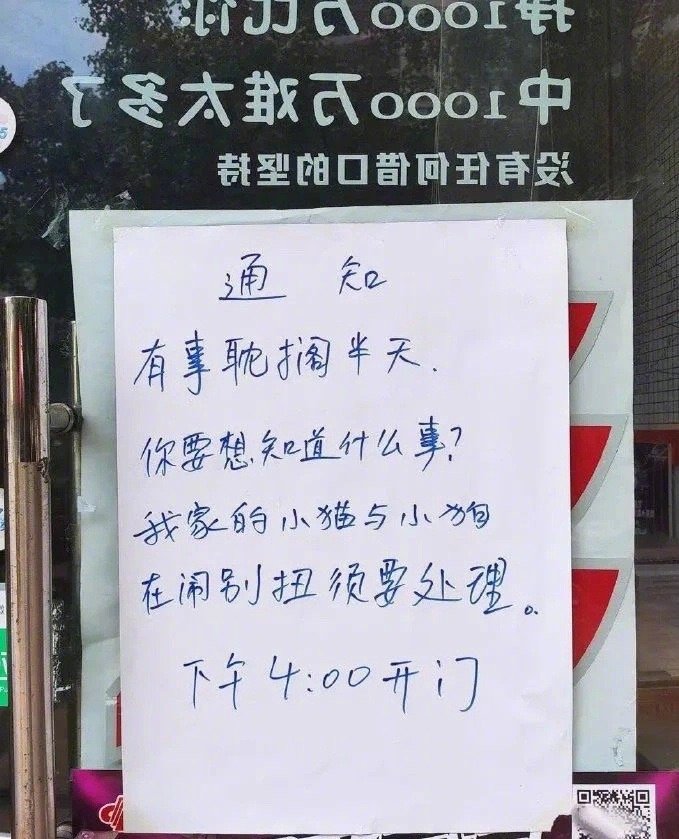 挣1000万比你
中1000万难太多了
没有任何借口的坚持
通知
有事耽搁半天.
你要想知道什么事?
我家的小猫与小狗
在闹别扭须要处理。
下午4:00开门